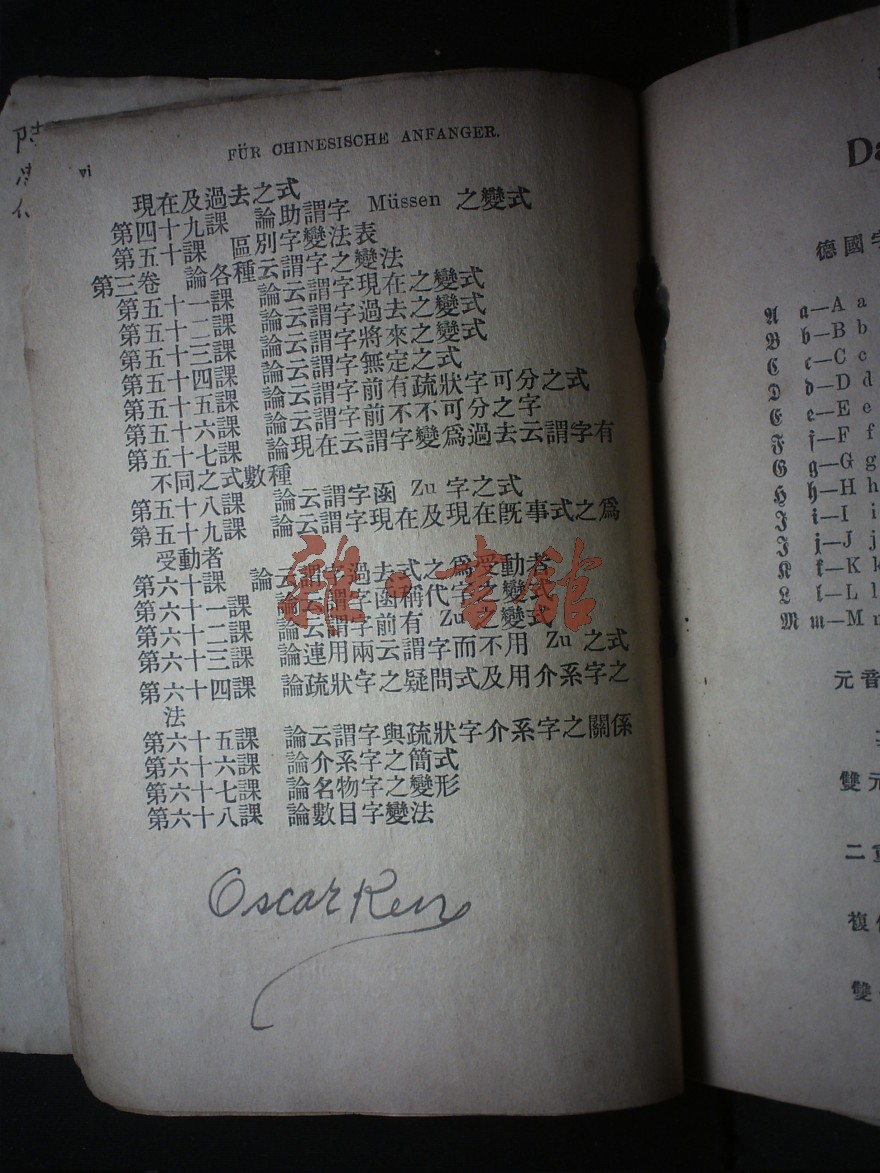 vi
FÜR CHINESISCHE ANFANGER.
現在及過去之式
第四十九課 論助謂字 Müssen 之變式
第五十課 區別字變法表
第三卷 論各種云謂字之變法
第五十一課 論云謂字現在之變式
第五十二課 論云謂字過去之變式
第五十三課 論云謂字將來之變式
第五十四課 論云謂字無定之式
第五十五課 論云謂字前有疏狀字可分之式
第五十六課 論云謂字前不不可分之字
第五十七課 論現在云謂字變爲過去云謂字有
不同之式數種
第五十八課 論云謂字函 Zu 字之式
第五十九課 論云謂字現在及現在既事式之爲
受動者
第六十課 論云謂字過去式之爲受動者
第六十一課 論云謂字函稱代字之變式
第六十二課 論云謂字前有 Zu 之變式
第六十三課 論連用兩云謂字而不用 Zu 之式
第六十四課 論疏狀字之疑問式及用介系字之
法
第六十五課 論云謂字與疏狀字介系字之關係
第六十六課 論介系字之簡式
第六十七課 論名物字之變形
第六十八課 論數目字變法
Oscar Ren
雜·書館
Da
德國字
𝕬 𝖆—A a
𝕭 𝖇—B b
𝕮 𝖈—C c
𝕯 𝖉—D d
𝕰 𝖊—E e
𝕱 𝖋—F f
𝕲 𝖌—G g
𝕳 𝖍—H h
𝕴 𝖎—I i
𝕵 𝖏—J j
𝕶 𝖐—K k
𝕷 𝖑—L l
𝕸 𝖒—M m
元音
雙元
二重
複
雙